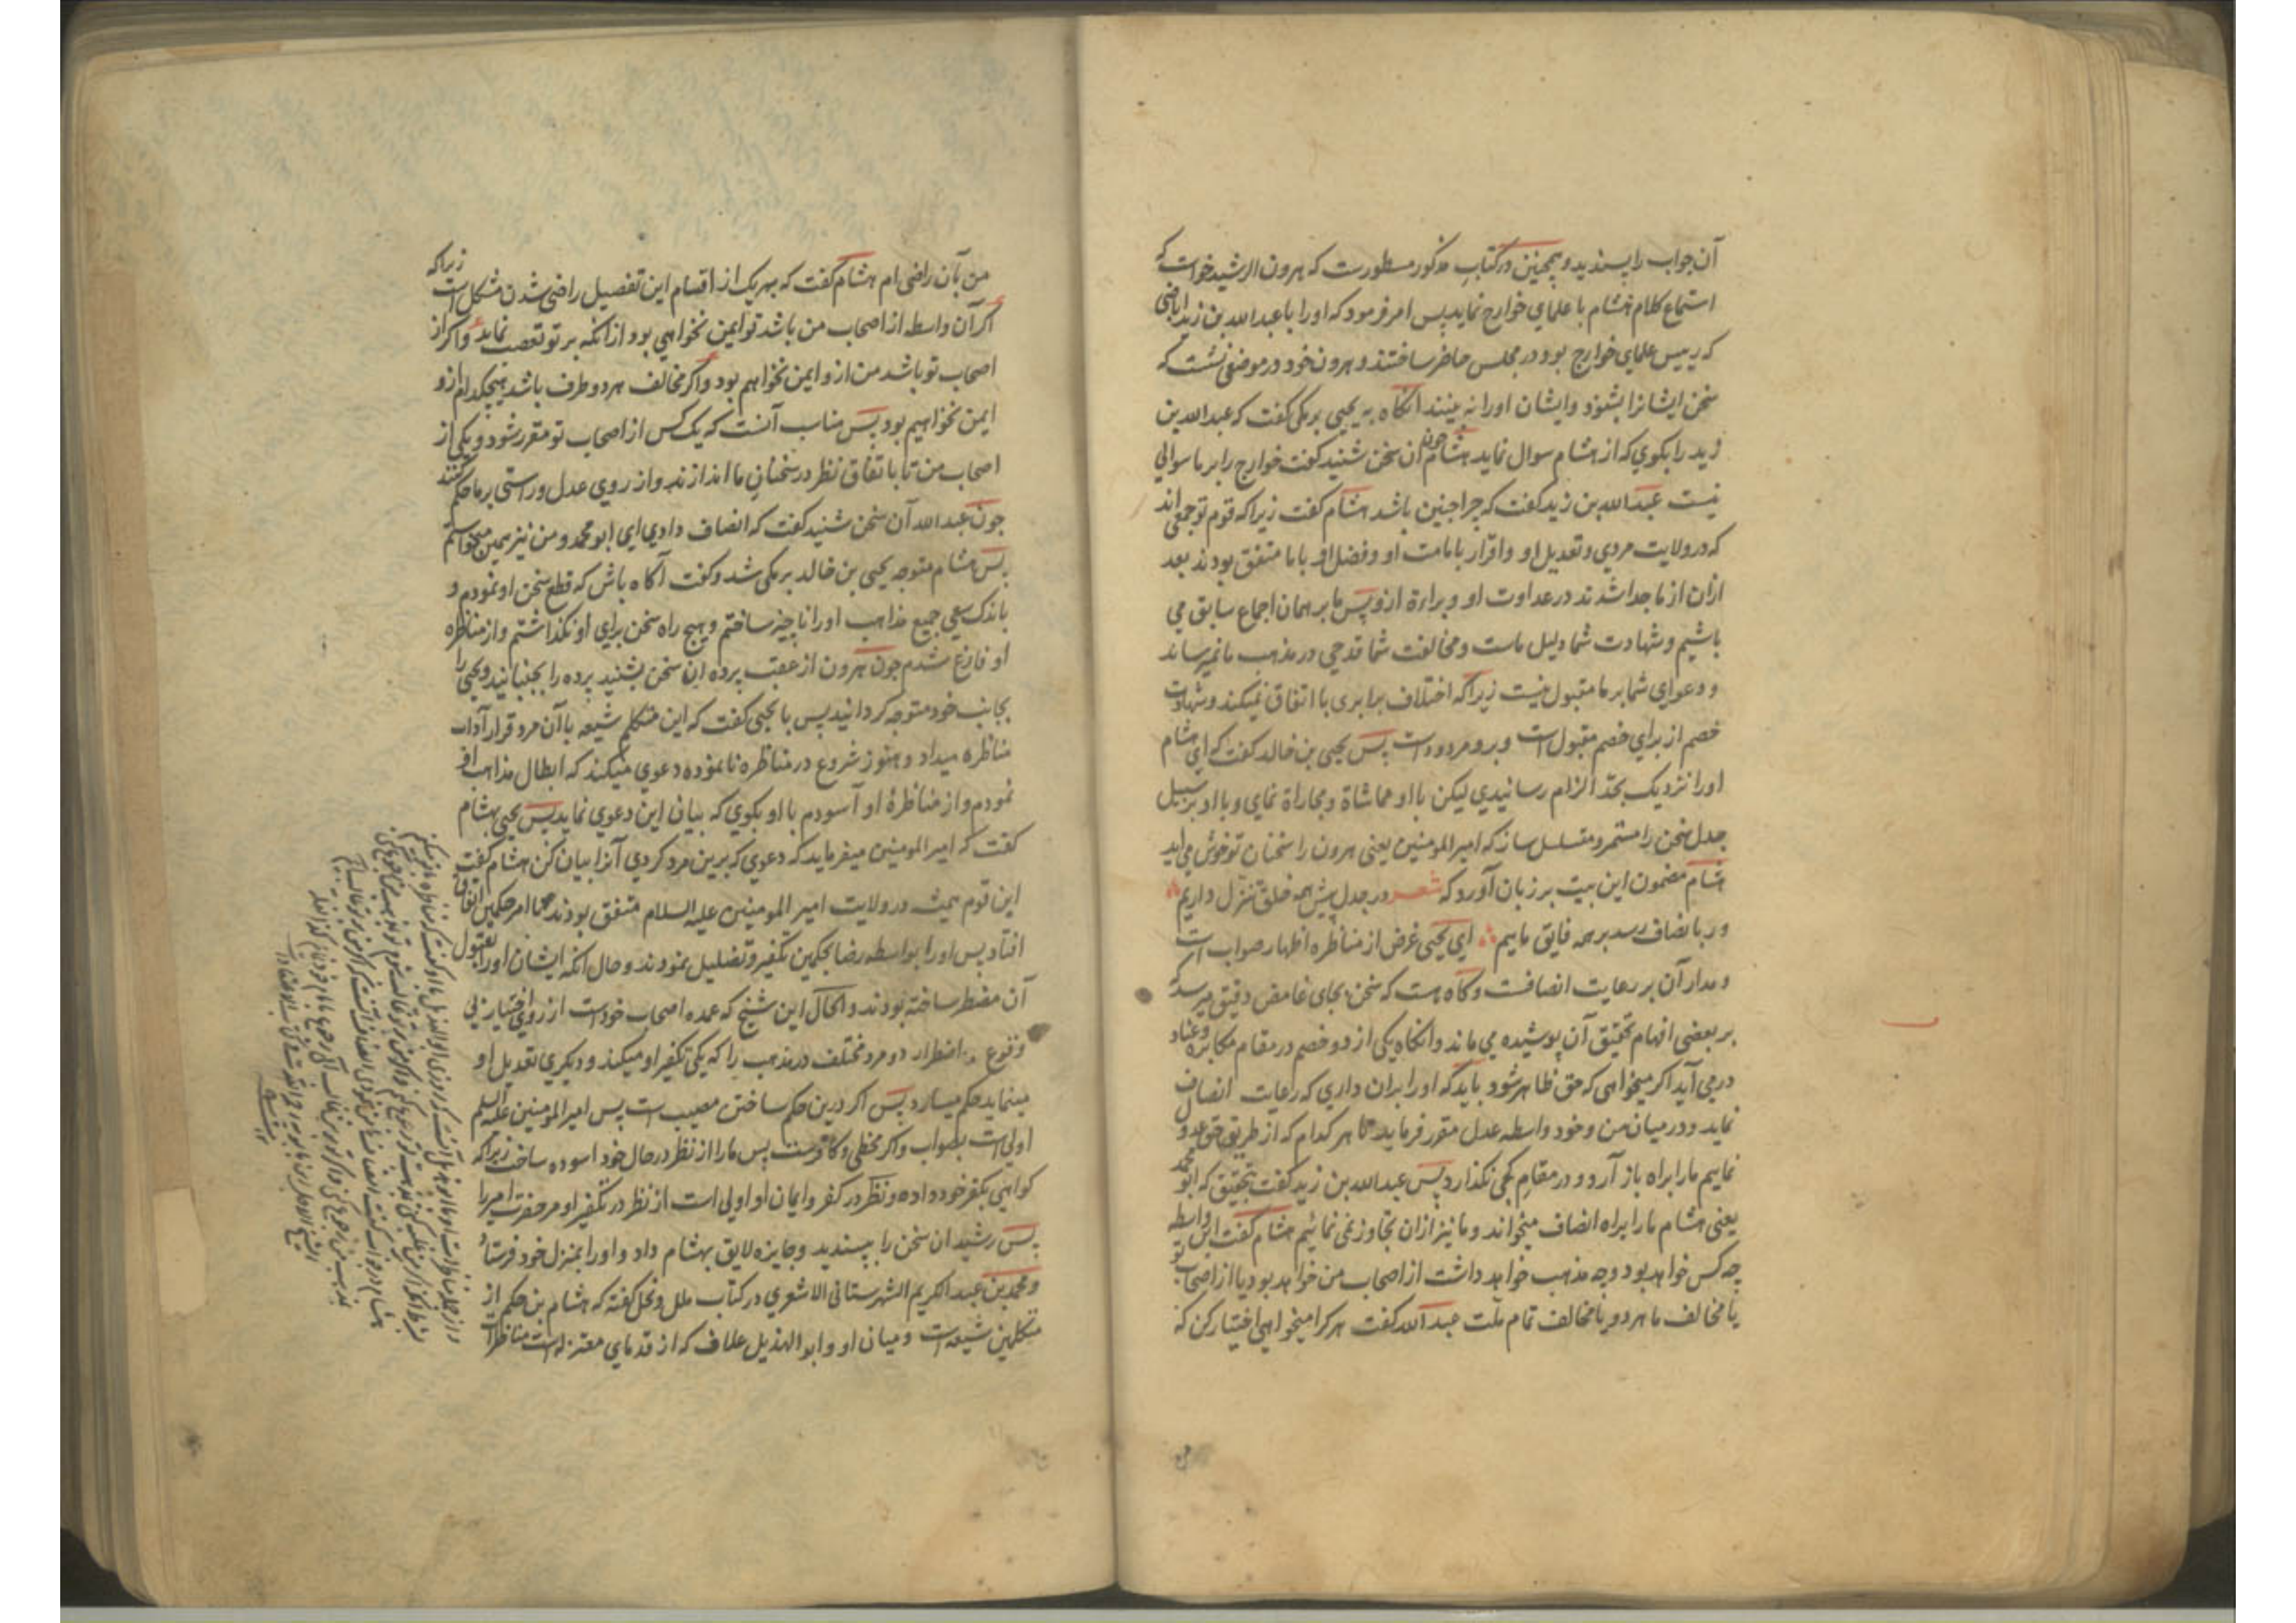 آن جواب را پسندید و همچنین در کتاب مذکور مسطورست که هرون الرشید خواست که
استماع کلام هشام با علمای خوارج نماید پس امر فرمود که او را با عبدالله بن زید اباضی
که رییس علمای خوارج بود در مجلس حاضر ساختند و هرون خود در موضعی نشست که
سخن ایشانرا بشنود و ایشان او را نه بینند آنکاه به یحیی برمکی کفت که عبدالله بن
زید را بکوی که از هشام سوال نماید هشام چون آن سخن شنید کفت خوارج را بر ما سوالی
نیست عبدالله بن زید کفت که چرا چنین باشد هشام کفت زیرا که قوم تو جمعی اند
که در ولایت مردی و تعدیل او و اقرار بامامت او و فضل او با ما متفق بودند بعد
ازان از ما جدا شدند در عداوت او و براءة ازو پس ما بر همان اجماع سابق می
باشیم و شهادت شما دلیل ماست و مخالفت شما قدحی در مذهب ما نمیرساند
و دعوای شما بر ما مقبول نیست زیرا که اختلاف برابری با اتفاق نمیکند و شهادت
خصم از برای خصم مقبول است و برو مردود است پس یحیی بن خالد کفت که ای هشام
او را نزدیک بحد الزام رسانیدی لیکن با او مماشاة و مجاراة نمای و با او بر سبیل
جدل سخن را مستمر و متسلسل ساز که امیرالمومنین یعنی هرون را سخنان تو خوش می آید
هشام مضمون این بیت بر زبان آورد که شعر در جدل پیش همه خلق تنزل داریم
ور بانصاف رسد بر همه فایق ماییم ای یحیی غرض از مناظره اظهار صواب است
و مدار آن بر رعایت انصافست و کاه هست که سخن بجای غامض دقیق میرسد که
بر بعضی افهام تحقیق آن پوشیده می ماند و انکاه یکی از دو خصم در مقام مکابره و عناد
در می آید اکر میخواهی که حق ظاهر شود باید که او را بران داری که رعایت انصاف
نماید و در میان من و خود واسطه عدل مقرر فرماید تا هر کدام که از طریق حق عدو
نماییم ما را براه باز آرد و در مقام کجی نکذارد پس عبدالله بن زید کفت بتحقیق که ابو محمد
یعنی هشام ما را براه انصاف میخواند و ما نیز ازان تجاوز نمی نمائیم هشام کفت این واسطه
چه کس خواهد بود و چه مذهب خواهد داشت از اصحاب من خواهد بود یا از اصحاب تو
یا مخالف ما هر دو یا مخالف تمام ملت عبدالله کفت هر کرا میخواهی اختیار کن که
من بآن راضی ام هشام کفت که بهر یک از اقسام این تفصیل راضی شدن مشکل است زیرا که
اکر آن واسطه از اصحاب من باشد تو ایمن نخواهی بود از انکه بر تو تعصب نماید و اکر از
اصحاب تو باشد من ازو ایمن نخواهم بود و اکر مخالف هر دو طرف باشد هیچکدام ازو
ایمن نخواهیم بود پس مناسب آنست که یک کس از اصحاب تو مقرر شود و یکی از
اصحاب من تا باتفاق نظر در سخنان ما اندازند و از روی عدل و راستی بر ما حکم کنند
چون عبدالله آن سخن شنید کفت که انصاف دادی ای ابو محمد و من نیز همین میخواستم
پس هشام متوجه یحیی بن خالد برمکی شد و کفت آکاه باش که قطع سخن او نمودم و
باندک سعی جمیع مذاهب او را ناچیز ساختم و هیچ راه سخن برای او نکذاشتم و از مناظره
او فارغ شدم چون هرون از عقب پرده این سخن بشنید پرده را بجنبانید و یحیی را
بجانب خود متوجه کردانید پس با یحیی کفت که این متکلم شیعه با آن مرد قرار آداب
مناظره میداد و هنوز شروع در مناظره نانموده دعوی میکند که ابطال مذاهب او
نمودم و از مناظرهٔ او آسودم با او بکوی که بیان این دعوی نماید پس یحیی بهشام
کفت که امیرالمومنین میفرماید که دعوی که برین مرد کردی آنرا بیان کن هشام کفت
این قوم همیشه در ولایت امیرالمومنین علیه السلام متفق بودند تا امر حکمین اتفاق
افتاد پس او را بواسطه رضا بحکمین تکفیر و تضلیل نمودند و حال انکه ایشان او را بقبول
آن مضطر ساخته بودند و الحال این شیخ که عمده اصحاب خود است از روی اختیار بی
وقوع اضطرار دو مرد مختلف در مذهب را که یکی تکفیر او میکند و دیکری تعدیل او
مینماید حکم میسازد پس اکر درین حکم ساختن مصیب است پس امیرالمومنین علیه السلم
اولی است بصواب و اکر مخطی و کافرست پس ما را از نظر در حال خود آسوده ساخت زیرا که
کواهی بکفر خود داده و نظر در کفر و ایمان او اولی است از نظر در تکفیر او مر حضرت امیر را
پس رشید ان سخن را بپسندید و جایزه لایق بهشام داد و او را بمنزل خود فرستاد
و محمد بن عبد الکریم الشهرستانی الاشعری در کتاب ملل و نحل کفته که هشام بن حکم از
متکلمین شیعه است و میان او و ابو الهذیل علاف که از قدمای معتزله است مناظرات